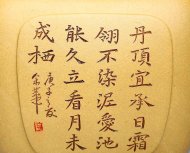 丹頂宜承日霜
翎不染泥愛池
能久立看月未
成栖
庚子之